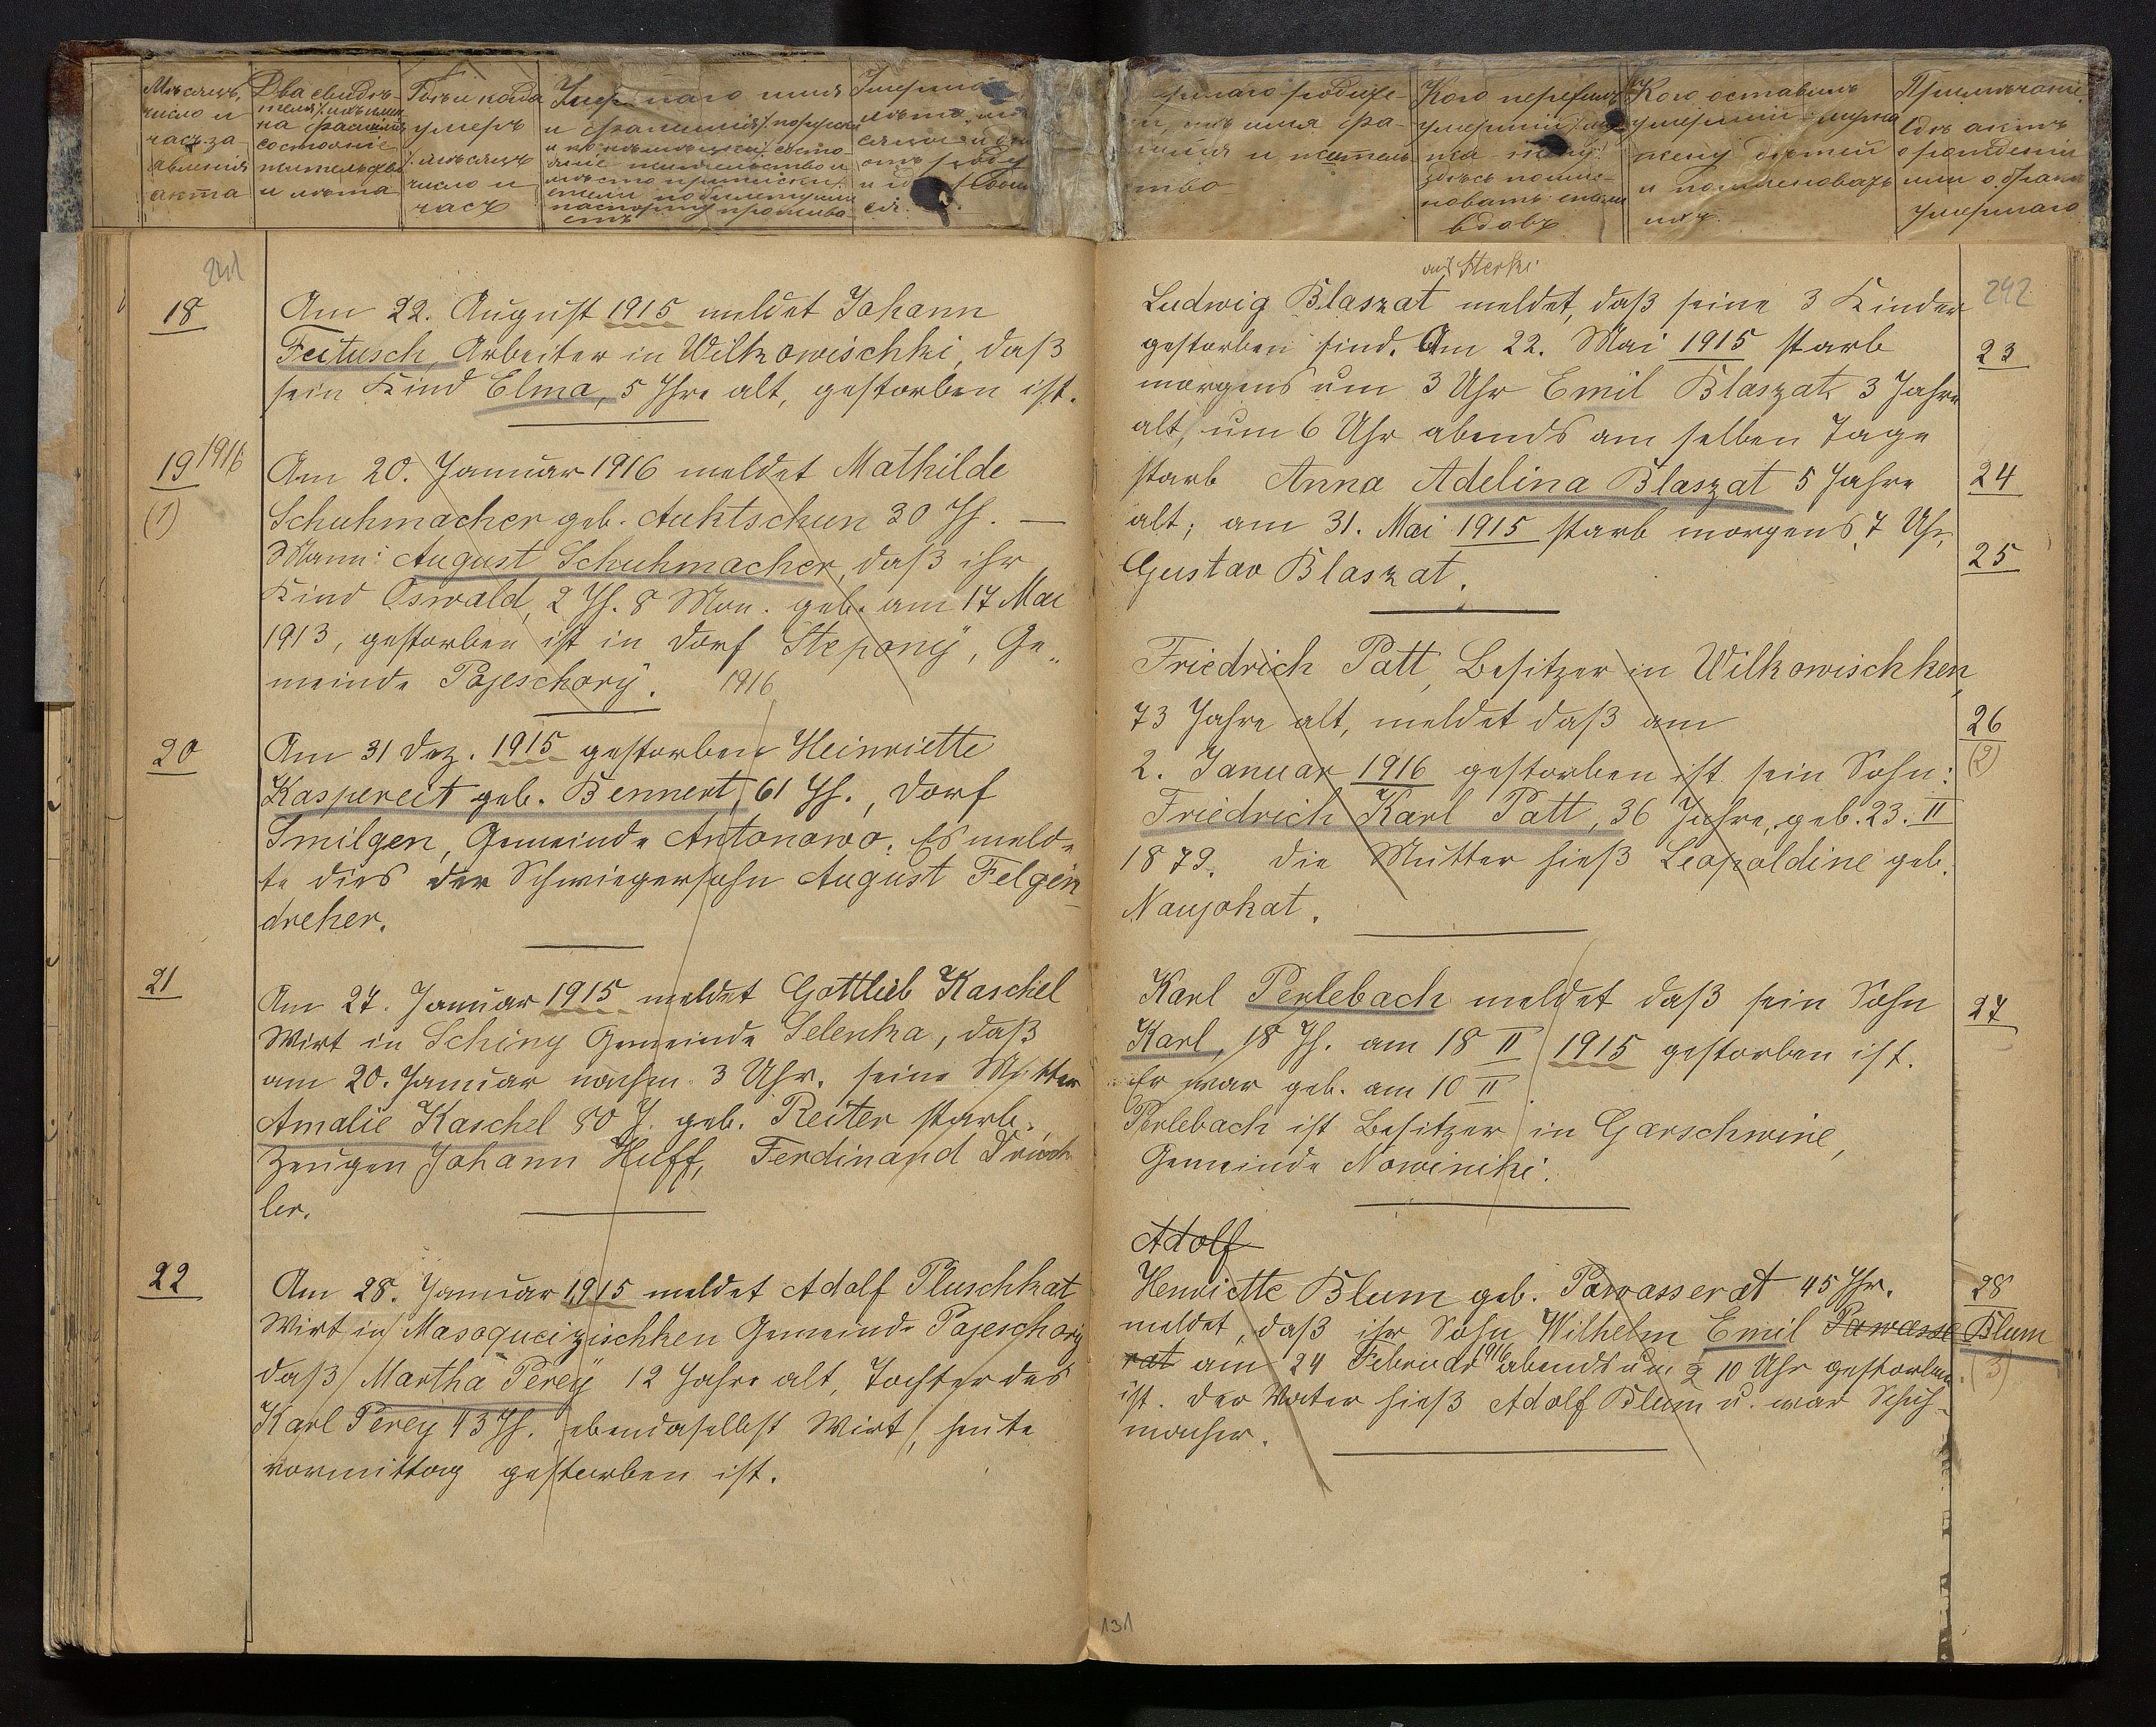 Мѣсяцъ,
число и
часъ за
явленія
акта
Два свидѣ-
теля/ихъ имя
на фамилія
состояніе
жительство
и лѣта
Годъ и когда
умеръ
/мѣсяцъ
число и
часъ
имя
и фамилія/по русски
и по нѣмецки/ состо-
яніе жительство и
мѣсто приписки/
если по билету или
паспорту прожива-
етъ
лѣта
родителе-
имя фа-
и житель
ство
Кого пережилъ
умершій/му
жа-жену/
здѣсь поиме-
новать если
вдовъ
Кого оставилъ
умершій-мужа
жену дѣтей
и поименовать
ихъ.
Примѣчаніе
гдѣ актъ
о рожденіи
или о брак
умершаго
241
18
Am 22. August 1915 meldet Johann
Feitusch, Arbeiter in Wilkowischki, daß
sein Kind Elma, 5 Jhre alt, gestorben ist.
19 1916
(1)
Am 20. Januar 1916 meldet Mathilde
Schuhmacher geb. Auktschun 30 Jh. —
Mann: August Schuhmacher, daß ihr
Kind Oswald, 2 Jh. 8 Mon. geb. am 17 Mai
1913, gestorben ist in Dorf Stepony, Ge„
meinde Pojeschory. 1916
20
Am 31 Dez. 1915 gestorben Heinriette
Kaspereit geb. Bennert, 61 Jh., Dorf
Smilgen, Gemeinde Antonowo. Es melde
te dies der Schwiegersohn August Felgen-
dreher.
21
Am 27. Januar 1915 meldet Gottlieb Kaschel
Wirt in Sching Gemeinde Selenka, daß
am 20. Januar nachm. 3 Uhr. seine Mutter
Amalie Kaschel 80 J. geb. Reiter starb.
Zeugen Johann Huff, Ferdinand
ler.
22
Am 28. Januar 1915 meldet Adolf Pluschkat
Wirt in Gemeinde Pojeschory
daß Martha Perey 12 Jahre alt, Tochter des
Karl Perey 43 Jh. ebendaselbst Wirt, heute
vormittag gestorben ist.
aus Sterki
Ludwig Blaszat meldet, daß seine 3 Kinder 242
gestorben sind. Am 22. Mai 1915 starb
23
morgens um 3 Uhr Emil Blaszat 3 Jahre
alt, um 6 Uhr abends am selben Tage
starb Anna Adelina Blaszat 5 Jahre
24
alt; am 31. Mai 1915 starb morgens 7 Uhr,
Gustav Blaszat.
25
Friedrich Patt, Besitzer in Wilkowischken,
73 Jahre alt, meldet daß am
26
2. Januar 1916 gestorben ist sein Sohn:
(2)
Friedrich Karl Patt, 36 Jahre, geb. 23. II
1879. Die Mutter hieß Leopoldine geb.
Naujokat.
Karl Perlebach meldet daß sein Sohn
27
Karl, 18 Jh. am 18 II 1915 gestorben ist.
Er war geb. am 10 II.
Perlebach ist Besitzer in Garschwine,
Gemeinde Nowiniki.
Adolf
Henriette Blum geb. Pawasserat 45 Jhr.
28
meldet, daß ihr Sohn Wilhelm Emil Pawasse Blum
rat am 24 Februar 1916 abends um ½ 10 Uhr gestorben
(3)
ist. Der Vater hieß Adolf Blum u. war Schuh-
macher.
131